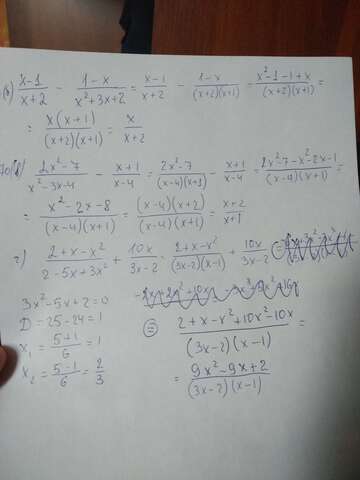 б) (x-1)/(x+2) - (1-x)/(x²+3x+2) = (x-1)/(x+2) - (1-x)/((x+2)(x+1)) = (x²-1-1+x)/((x+2)(x+1)) =
= (x(x+1))/((x+2)(x+1)) = x/(x+2)
70(8) (2x²-7)/(x²-3x-4) - (x+1)/(x-4) = (2x²-7)/((x-4)(x+1)) - (x+1)/(x-4) = (2x²-7-x²-2x-1)/((x-4)(x+1)) =
= (x²-2x-8)/((x-4)(x+1)) = ((x-4)(x+2))/((x-4)(x+1)) = (x+2)/(x+1)
г) (2+x-x²)/(2-5x+3x²) + 10x/(3x-2) = (2+x-x²)/((3x-2)(x-1)) + 10x/(3x-2) =
3x²-5x+2=0
D=25-24=1
x₁ = (5+1)/6 = 1
x₂ = (5-1)/6 = 2/3
= (2+x-x²+10x²-10x)/((3x-2)(x-1)) =
= (9x²-9x+2)/((3x-2)(x-1))